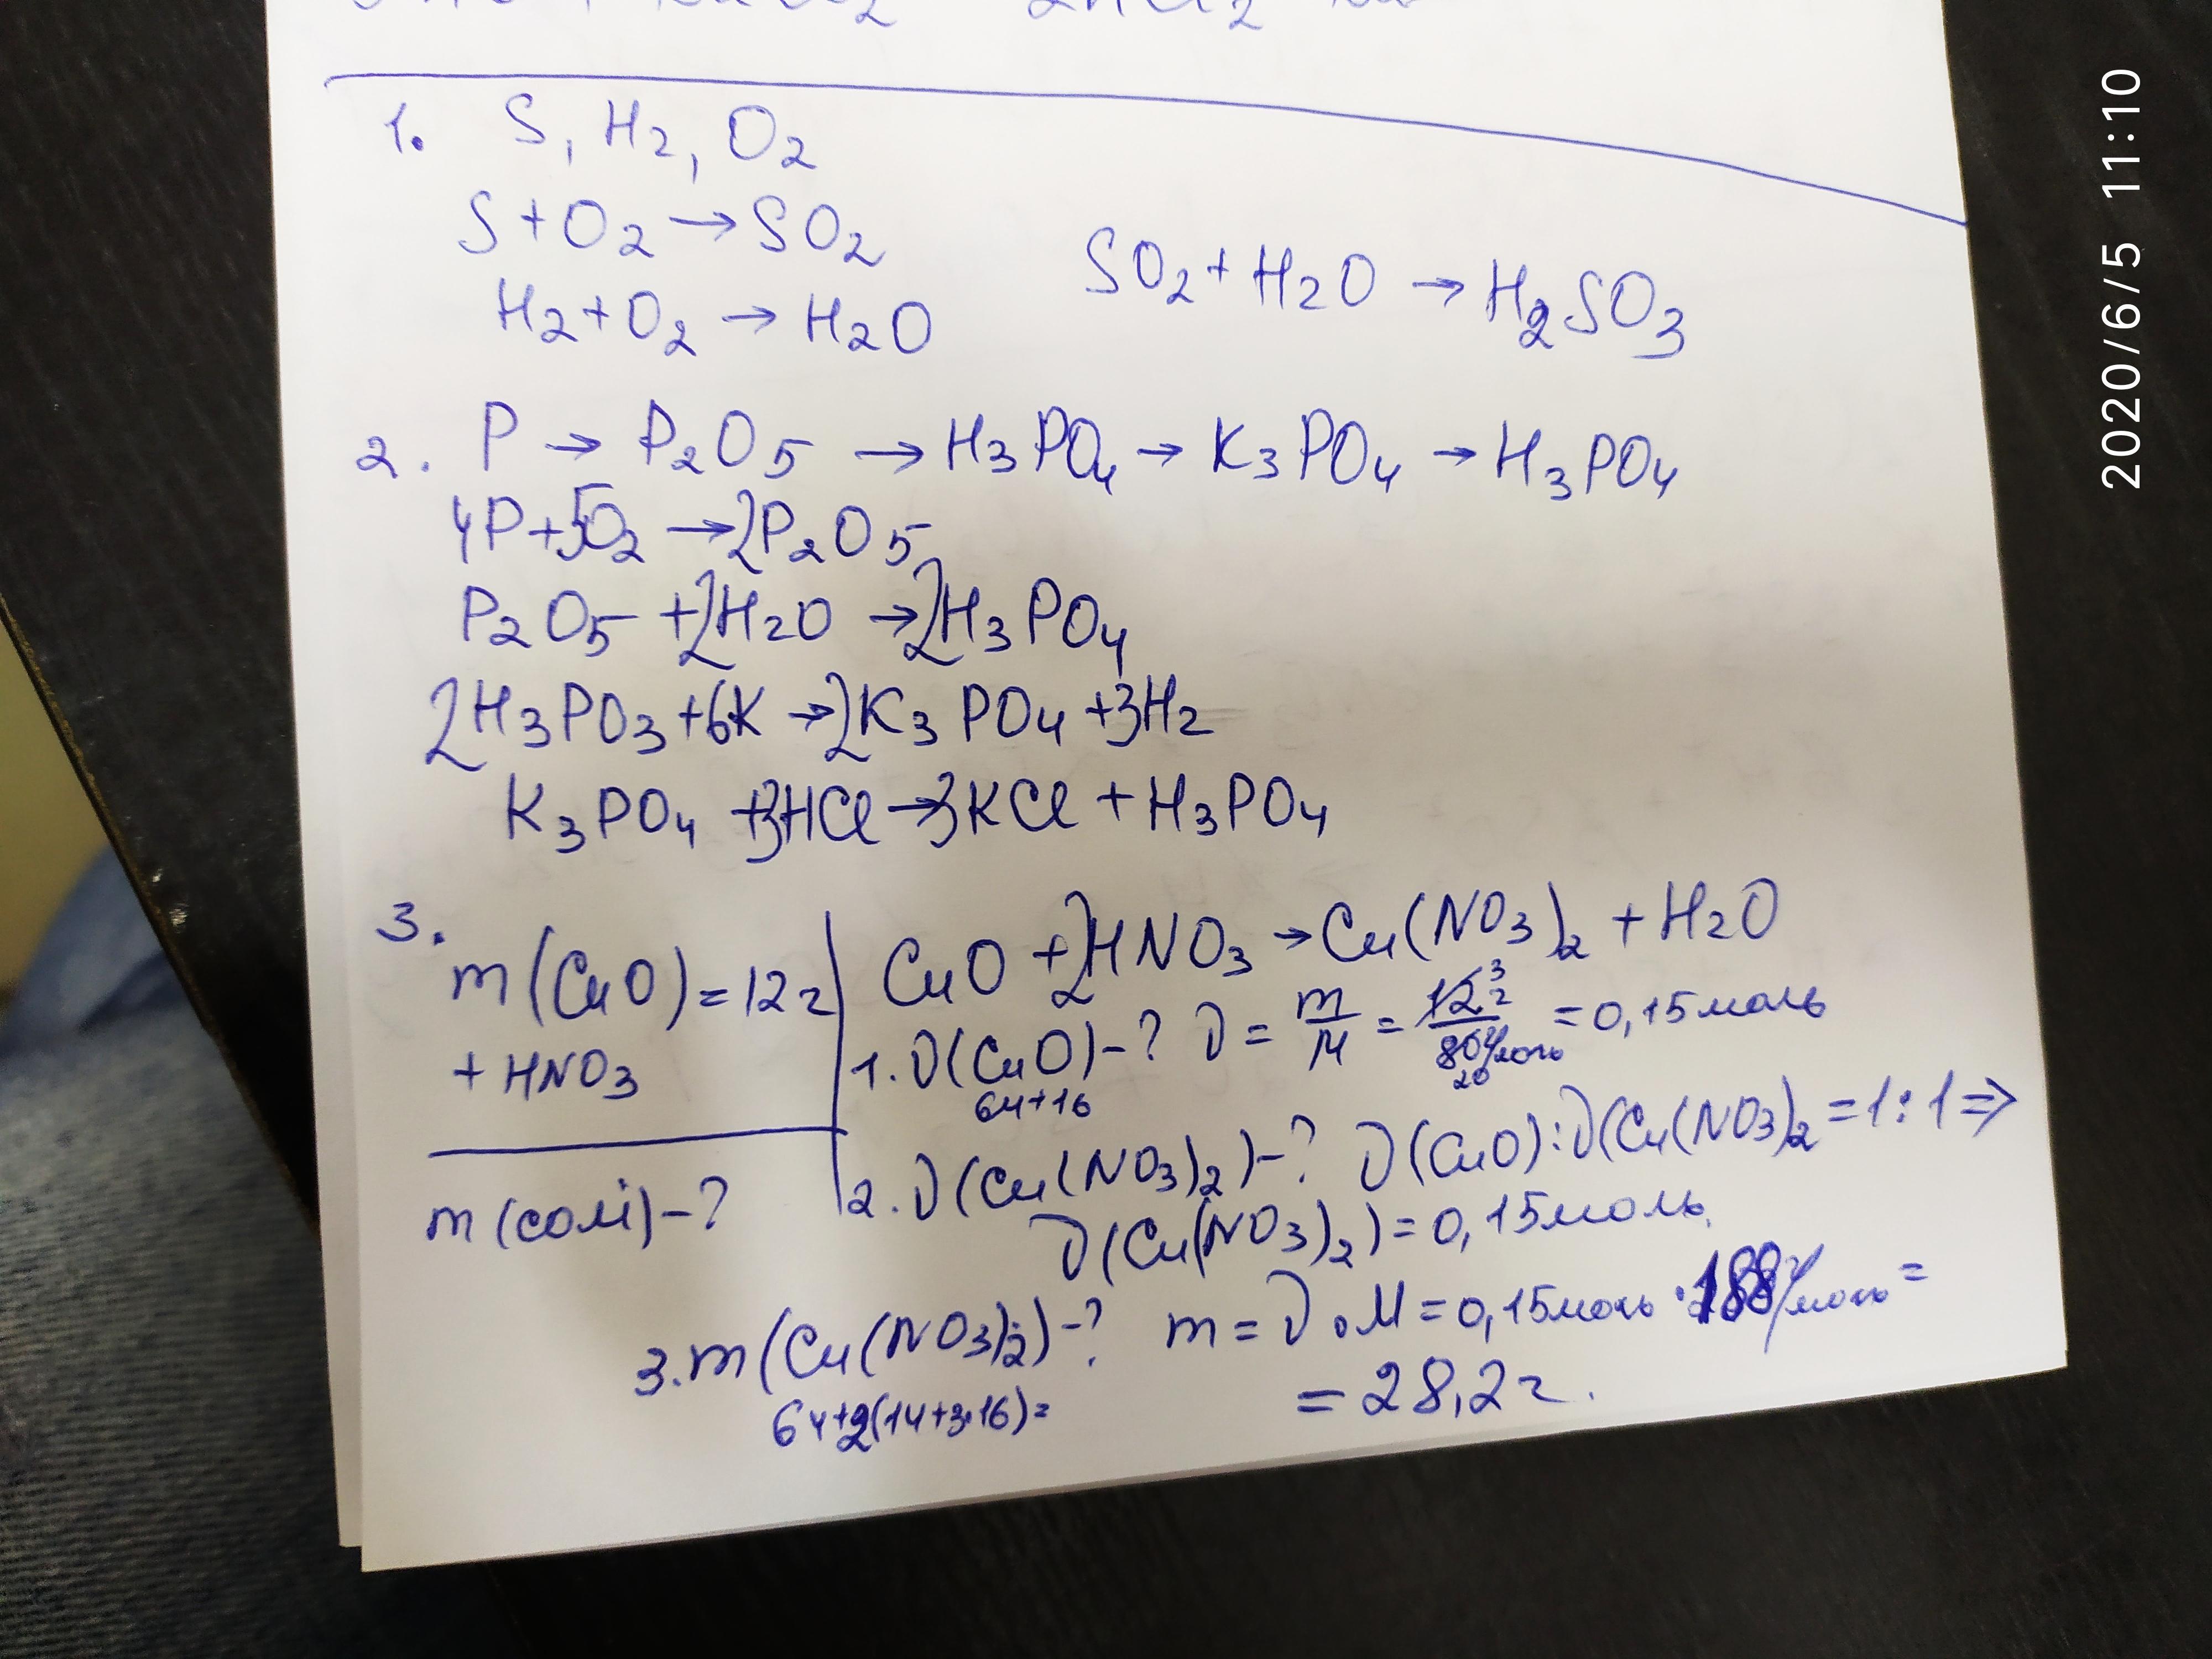 1. S, H2, O2
S + O2 → SO2
H2 + O2 → H2O
SO2 + H2O → H2SO3
2. P → P2O5 → H3PO4 → K3PO4 → H3PO4
4P + 5O2 → 2P2O5
P2O5 + 2H2O → 2H3PO4
2H3PO3 + 6K → 2K3PO4 + 3H2
K3PO4 + 3HCl → 3KCl + H3PO4
3.
m(CuO) = 12г
+ HNO3
m(солі) - ?
CuO + 2HNO3 → Cu(NO3)2 + H2O
1. ν(CuO) - ? ν = m/M = 12г/80г/моль = 0,15моль
3
20
64+16
2. ν(Cu(NO3)2) - ? ν(CuO) : ν(Cu(NO3)2 = 1 : 1 ⇒
ν(Cu(NO3)2) = 0,15моль.
3. m(Cu(NO3)2) - ? m = ν · M = 0,15моль · 188г/моль =
64+2(14+3·16)=
= 28,2г.
2020/6/5 11:10